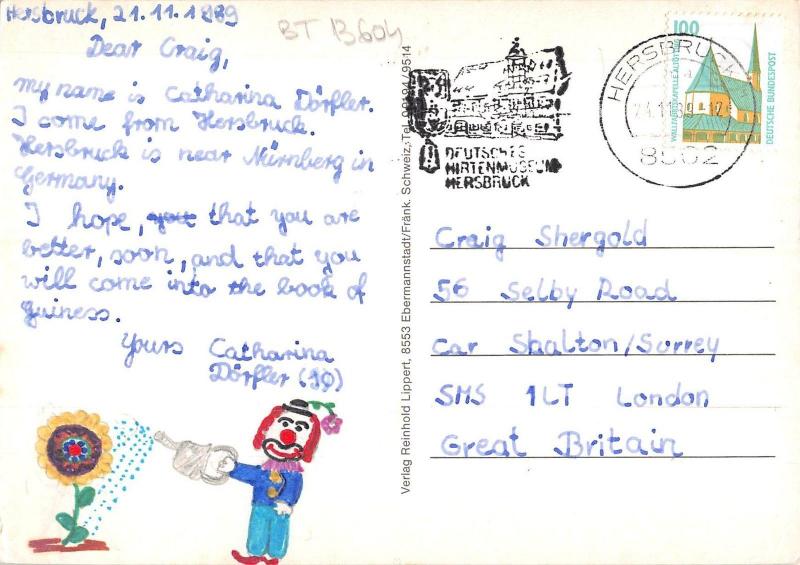 Hersbruck, 21.11.1989
BT B604
Dear Craig,
my name is Catharina Dörfler.
I come from Hersbruck.
Hersbruck is near Nürnberg in
Germany.
I hope, you that you are
better, soon, and that you
will come into the book of
guiness.
Yours Catharina
Dörfler (10)
Verlag Reinhold Lippert, 8553 Ebermannstadt/Fränk. Schweiz, Tel. 09194/9514
DEUTSCHES
HIRTENMUSEUM
HERSBRUCK
HERSBRUCK
8562
100
WALLFAHRTSKAPELLE ALTÖTTING
DEUTSCHE BUNDESPOST
Craig Shergold
56 Selby Road
Car Shalton/Surrey
SMS 1LT London
Great Britain